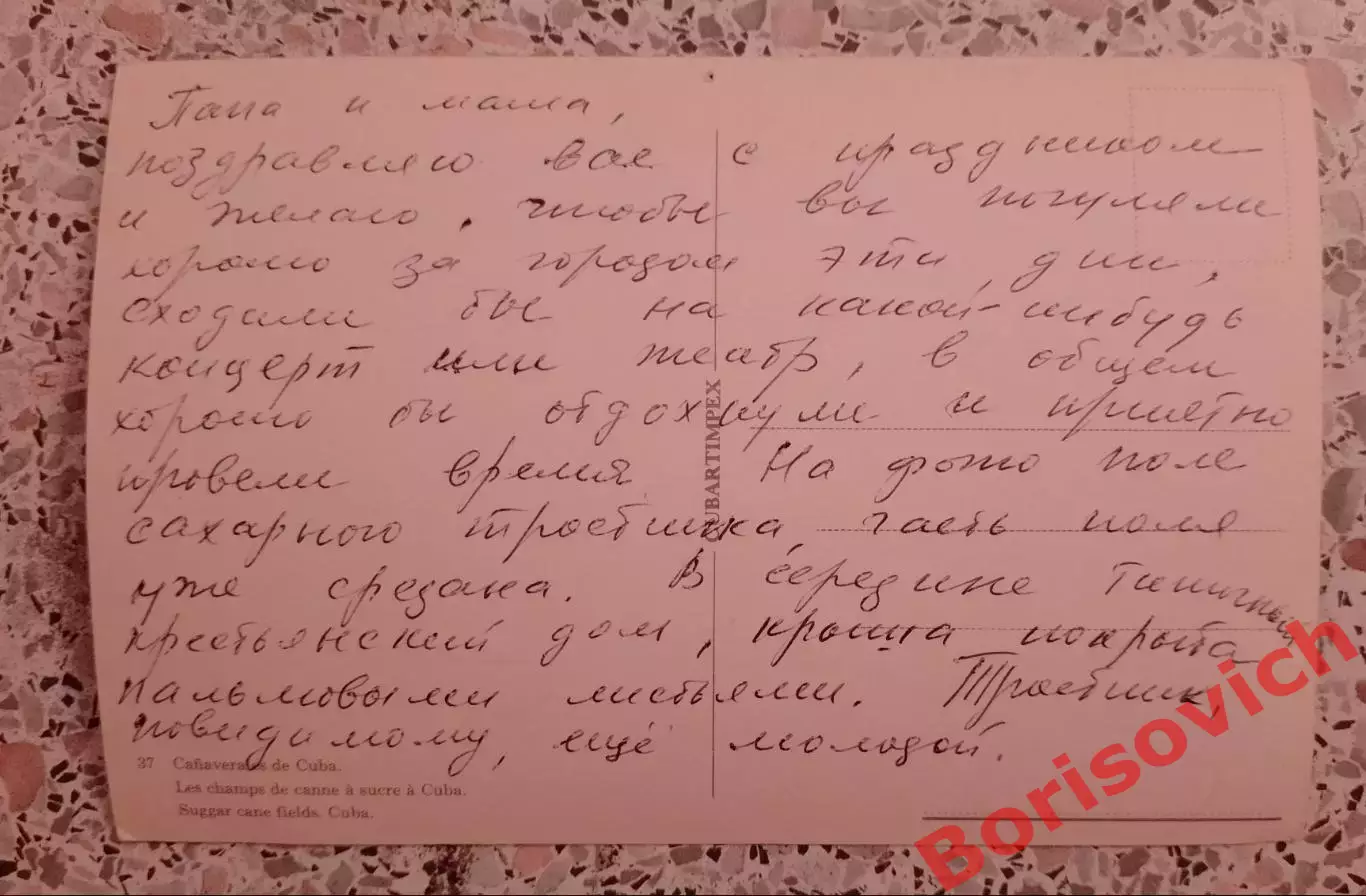 Папа и мама,
поздравляю вас с праздником
и желаю, чтобы вы погуляли
хорошо за городом эти дни,
сходили бы на какой-нибудь
концерт или театр, в общем
хорошо бы отдохнули и приятно
провели время. На фото поле
сахарного тростника, часть поля
уже срезана. В середине типичный
крестьянский дом, крыша покрыта
пальмовыми листьями. Тростник,
повидимому, ещё молодой.
CUBARTIMPEX
37 Cañaverales de Cuba.
Les champs de canne à sucre à Cuba.
Suggar cane fields. Cuba.
Borisovich